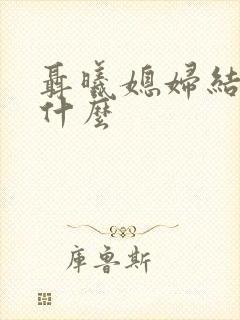 聶曦媳婦結
什麼
庫魯斯